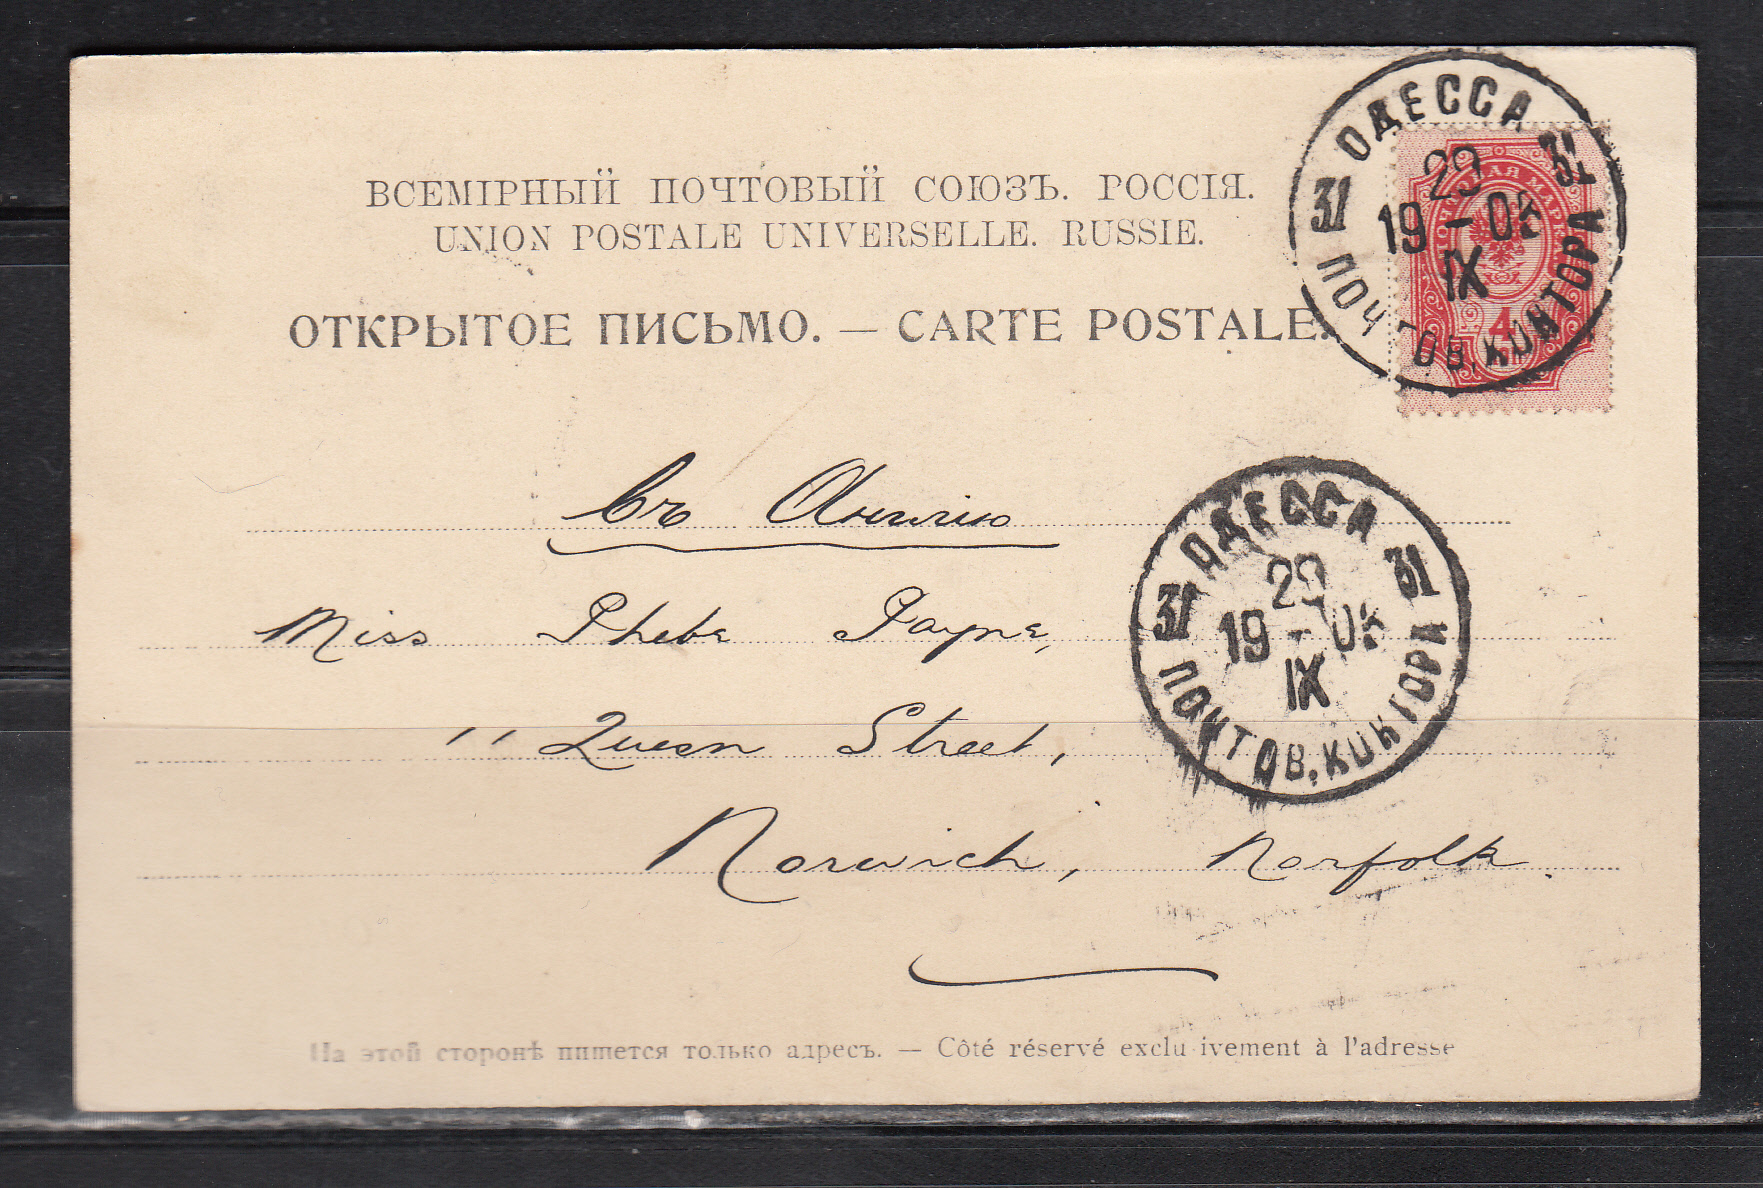 ВСЕМІРНЫЙ ПОЧТОВЫЙ СОЮЗЪ. РОССІЯ.
UNION POSTALE UNIVERSELLE. RUSSIE.
ОТКРЫТОЕ ПИСЬМО. — CARTE POSTALE.
ОДЕССА
31 31
29
19 - 03
IX
ПОЧТОВ. КОНТОРА
ПОЧТОВАЯ МАРКА
4
Въ Англію
Miss Phebe Payne,
11 Queen Street,
Norwich, Norfolk.
ОДЕССА
31 31
29
19 - 03
IX
ПОЧТОВ. КОНТОРА
На этой сторонѣ пишется только адресъ. — Côté réservé exclusivement à l'adresse